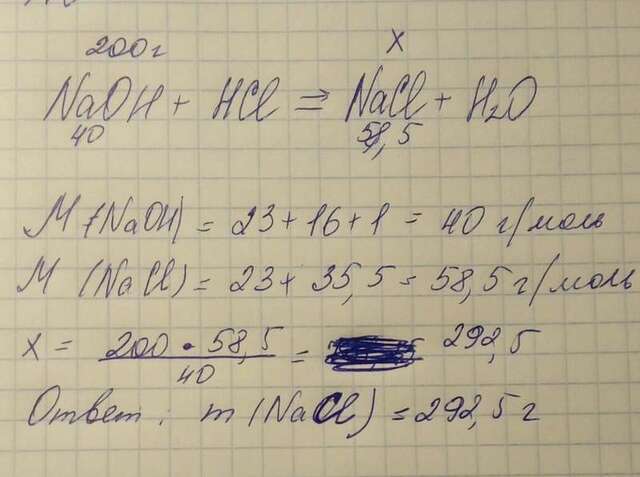 200г x
NaOH + HCl = NaCl + H₂O
40 58,5
M (NaOH) = 23 + 16 + 1 = 40 г/моль
M (NaCl) = 23 + 35,5 = 58,5 г/моль
x = 200 · 58,5 / 40 = 292,5
Ответ: m (NaCl) = 292,5 г